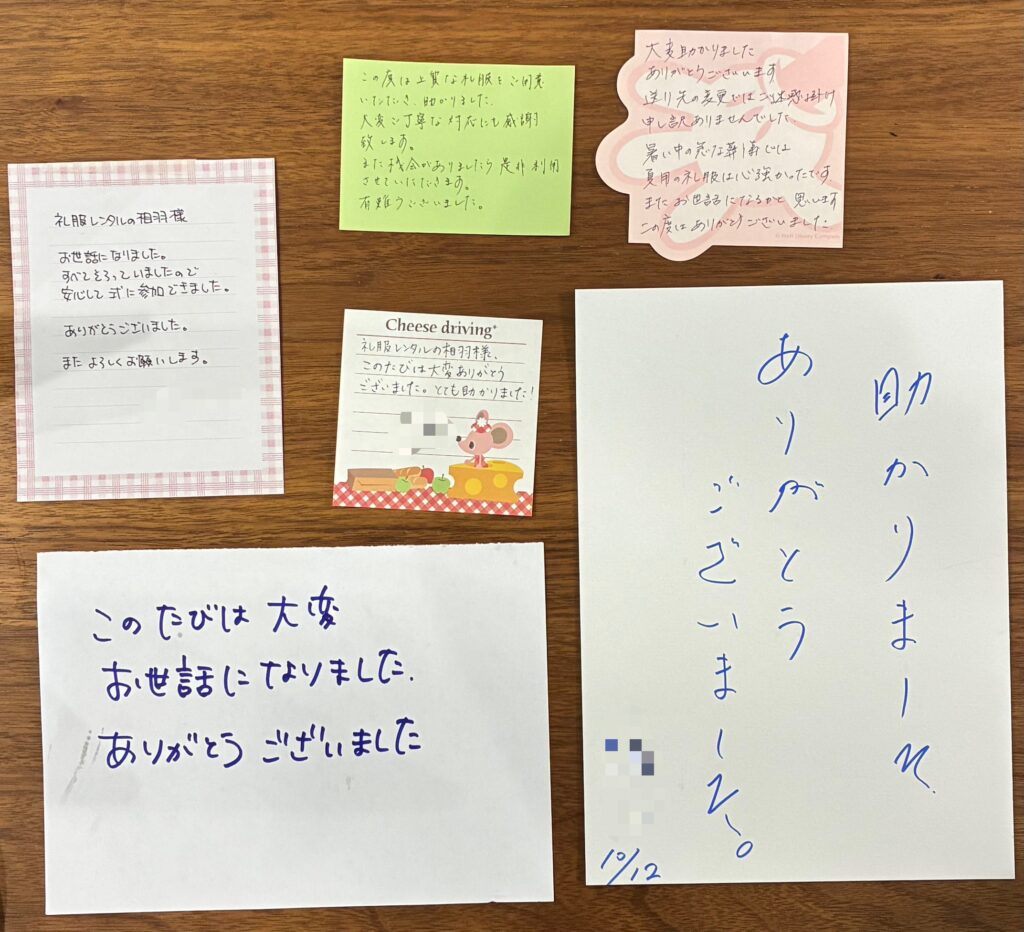 この度は上質な礼服をご用意
いただき、助かりました。
大変ご丁寧な対応にも感謝
致します。
また機会がありましたら是非利用
させていただきます。
有難うございました。
大変助かりました
ありがとうございます
送り先の変更ではご迷惑掛け
申し訳ありませんでした
暑い中の急な葬儀では
夏用の礼服は心強かったです
またお世話になるかと思います
この度はありがとうございました
礼服レンタルの相羽様
お世話になりました。
すべてそろっていましたので
安心して式に参加できました。
ありがとうございました。
またよろしくお願いします。
Cheese driving+
礼服レンタルの相羽様、
このたびは大変ありがとう
ございました。とても助かりました!
助かりました。
ありがとう
ございました。
10/12
このたびは大変
お世話になりました.
ありがとうございました